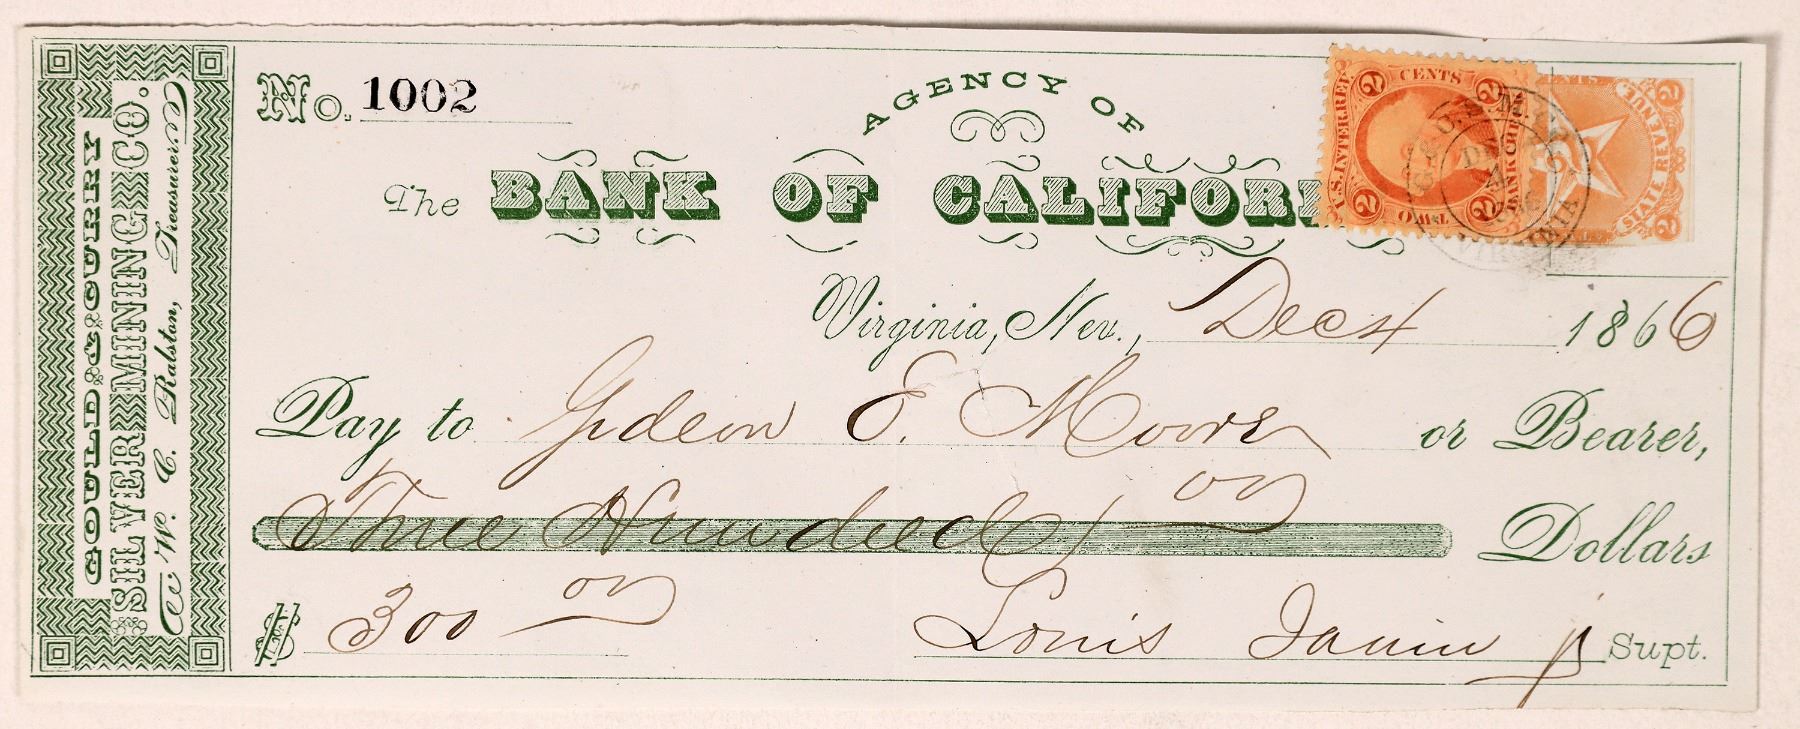 GOULD & CURRY
SILVER MINING CO.
W. C. Ralston, Treasurer
No. 1002
AGENCY OF
The BANK OF CALIFOR
U.S. INTER. REV.
2 CENTS 2
BANK CHECK
2 TWO 2
STATE REVENUE
2
G. & C. S. M. CO.
DEC
4
VIRGINIA
Virginia, Nev., Dec 4 1866
Pay to Gideon E. Moore or Bearer,
Three Hundred Dollars
$ 300
Louis Janin Jr Supt.